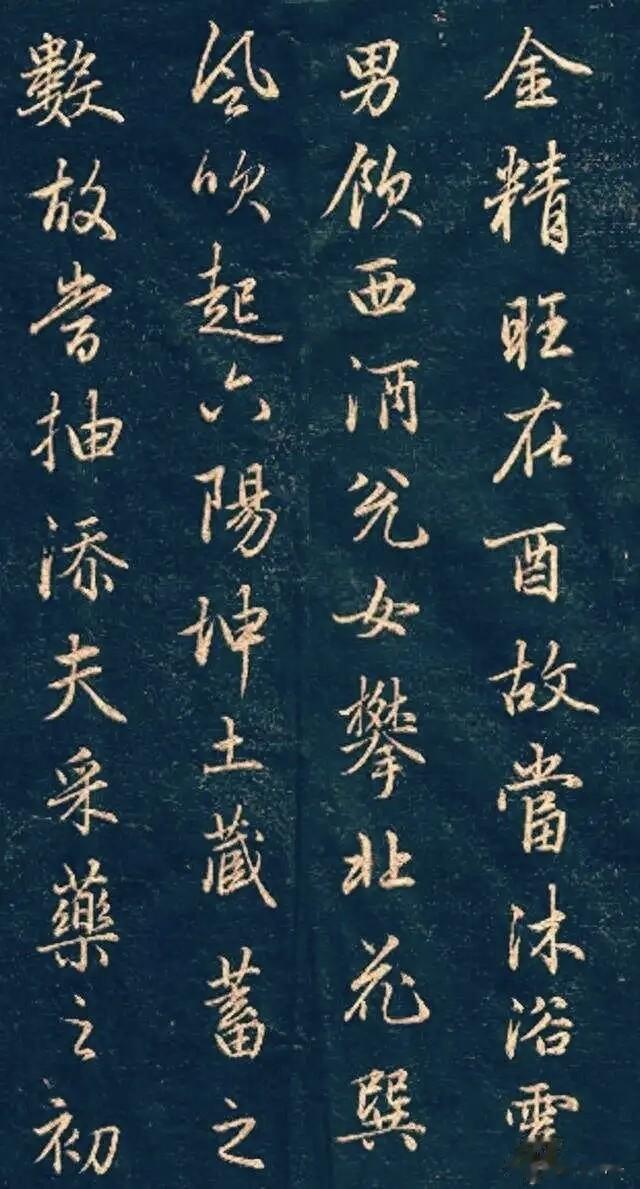 金精旺在酉故當沐浴震
男飲西酒兊女攀北花巽
風吹起六陽坤土蔵蓄之
數故當抽添夫采藥之初